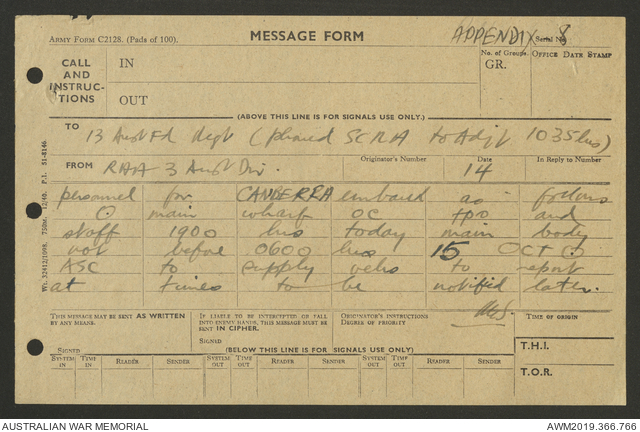 Army Form C2128. (Pads of 100).
MESSAGE FORM
APPENDIX 8
Serial No.
CALL AND INSTRUCTIONS
IN
OUT
No. of Groups.
GR.
Office Date Stamp
(ABOVE THIS LINE IS FOR SIGNALS USE ONLY.)
TO 13 Aust Fd Regt (phoned SCRA to Adjt 1035 hrs)
FROM RAA 3 Aust Div.
Originator's Number
Date 14
In Reply to Number
personnel for CANBERRA embark as follows
main wharf OC and
staff 1900 hrs today main body
not before 0600 hrs 15 OCT
ASC to supply vehs to report
at times to be notified later.
Wt. 32412/1098. 750M. 12/40. P.I. 51-8146
This message may be sent AS WRITTEN by any means.
If liable to be intercepted or fall into enemy hands, this message must be sent IN CIPHER.
Originator's Instructions
Degree of Priority
Time of Origin
Signed
Signed
(BELOW THIS LINE IS FOR SIGNALS USE ONLY)
T.H.I.
T.O.R.
System In
Time In
Reader
Sender
System Out
Time Out
Reader
Sender
System Out
Time Out
Reader
Sender
AUSTRALIAN WAR MEMORIAL
AWM2019.366.766